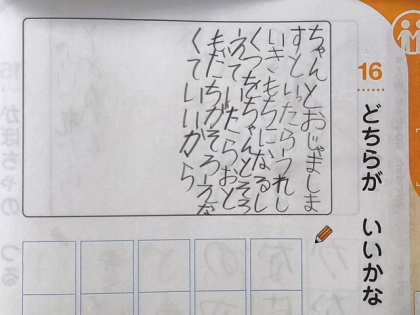 16 どちらが いいかな
ちゃんとおじゃましま
すといったらうれし
いきもちになるし
くつをちゃんとそろ
えていたらおと
もだちがそろえな
くていいから